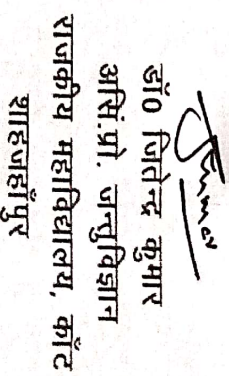 डॉ0 जितेन्द्र कुमार
असि.प्रो. जन्तुविज्ञान
राजकीय महाविद्यालय, काँट
शाहजहाँपुर